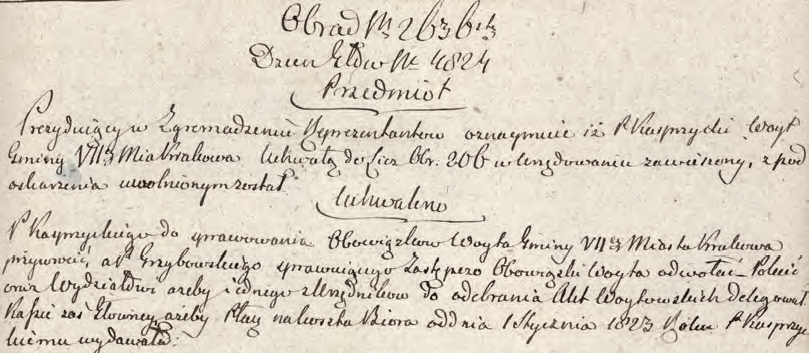 Obrad Nr 263
Dzien Głow Nr 4824
Przedmiot
Prezydujący w Zgromadzeniu Reprezentantow oznaymuie iż P. Kasprzycki Woyt
Gminy VIIéy Miasta Krakowa Uchwałą do Licz. Obr. 206 w Urzędowaniu zawieszony, z pod
oskarzenia uwolnionym został
Uchwalono
P. Kasprzyckiego do sprawowania Obowiązkow Woyta Gminy VIIéy Miasta Krakowa
przywrocić, a P. Grzybowskiego sprawuiącego Zastępczo Obowiązki Woyta odwołać – Polecić
oraz Wydziałowi ażeby iednego z Urzędnikow do odebrania Akt Woytowskich delegował
Kassie zaś Głowney ażeby Płacę na koszta Biora od dnia 1 Stycznia 1823 Roku P. Kasprzyc
kiemu wydawała.